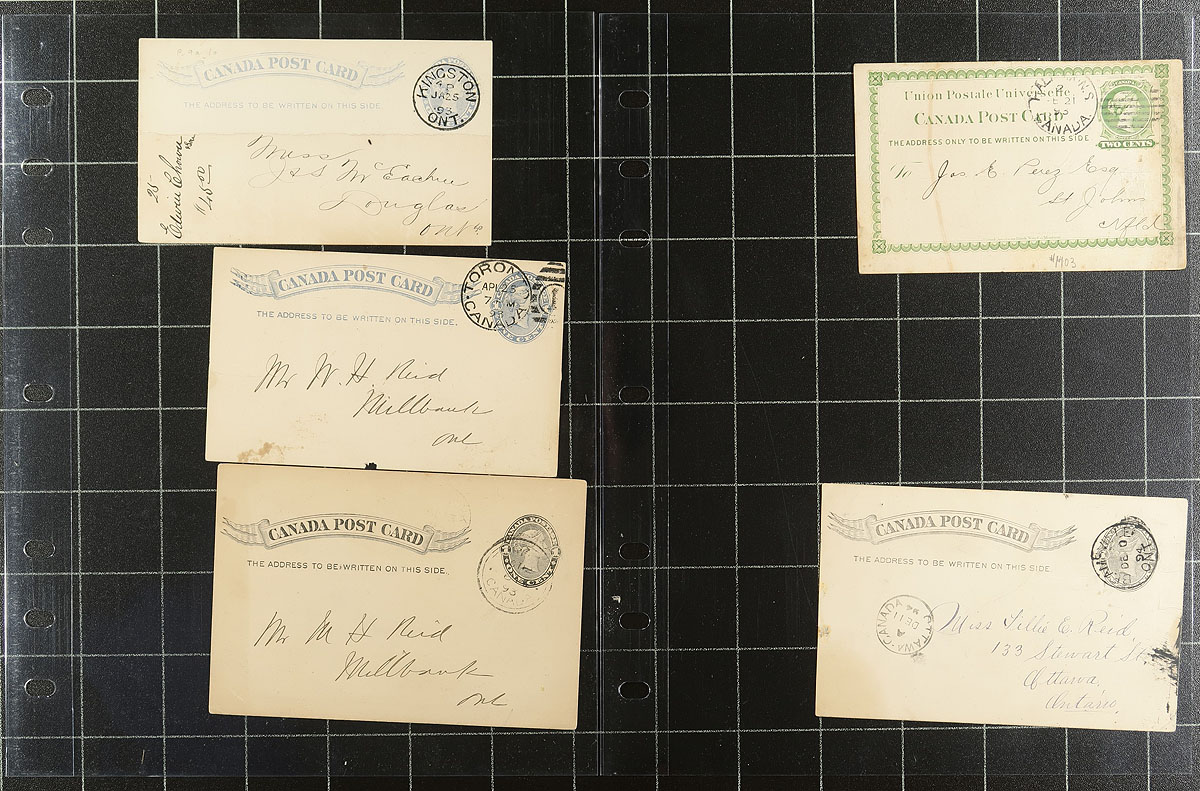 CANADA POST CARD
THE ADDRESS TO BE WRITTEN ON THIS SIDE
KINGSTON
JA 25
93
ONT.
25-
Edwin Chown
$45.00
Miss
J&S McEachren
Douglas
Ont
CANADA POST CARD
THE ADDRESS TO BE WRITTEN ON THIS SIDE.
TORONTO
AP 25
CANADA
ONE CENT
Mr W. H. Reid
Millbank
Ont
CANADA POST CARD
THE ADDRESS TO BE WRITTEN ON THIS SIDE.
CANADA POSTAGE
ONE CENT
93
CANADA
Mr M H Reid
Millbank
Ont
Union Postale Universelle
CANADA POST CARD
THE ADDRESS ONLY TO BE WRITTEN ON THIS SIDE
21
CANADA.
TWO CENTS
To Jas E. Perez Esq
St Johns
Nfld
CANADA POST CARD
THE ADDRESS TO BE WRITTEN ON THIS SIDE
DE 10
94
ONT.
OTTAWA · CANADA
DE 11
94
Miss Tillie E. Reid,
133 Stewart St
Ottawa,
Ontario